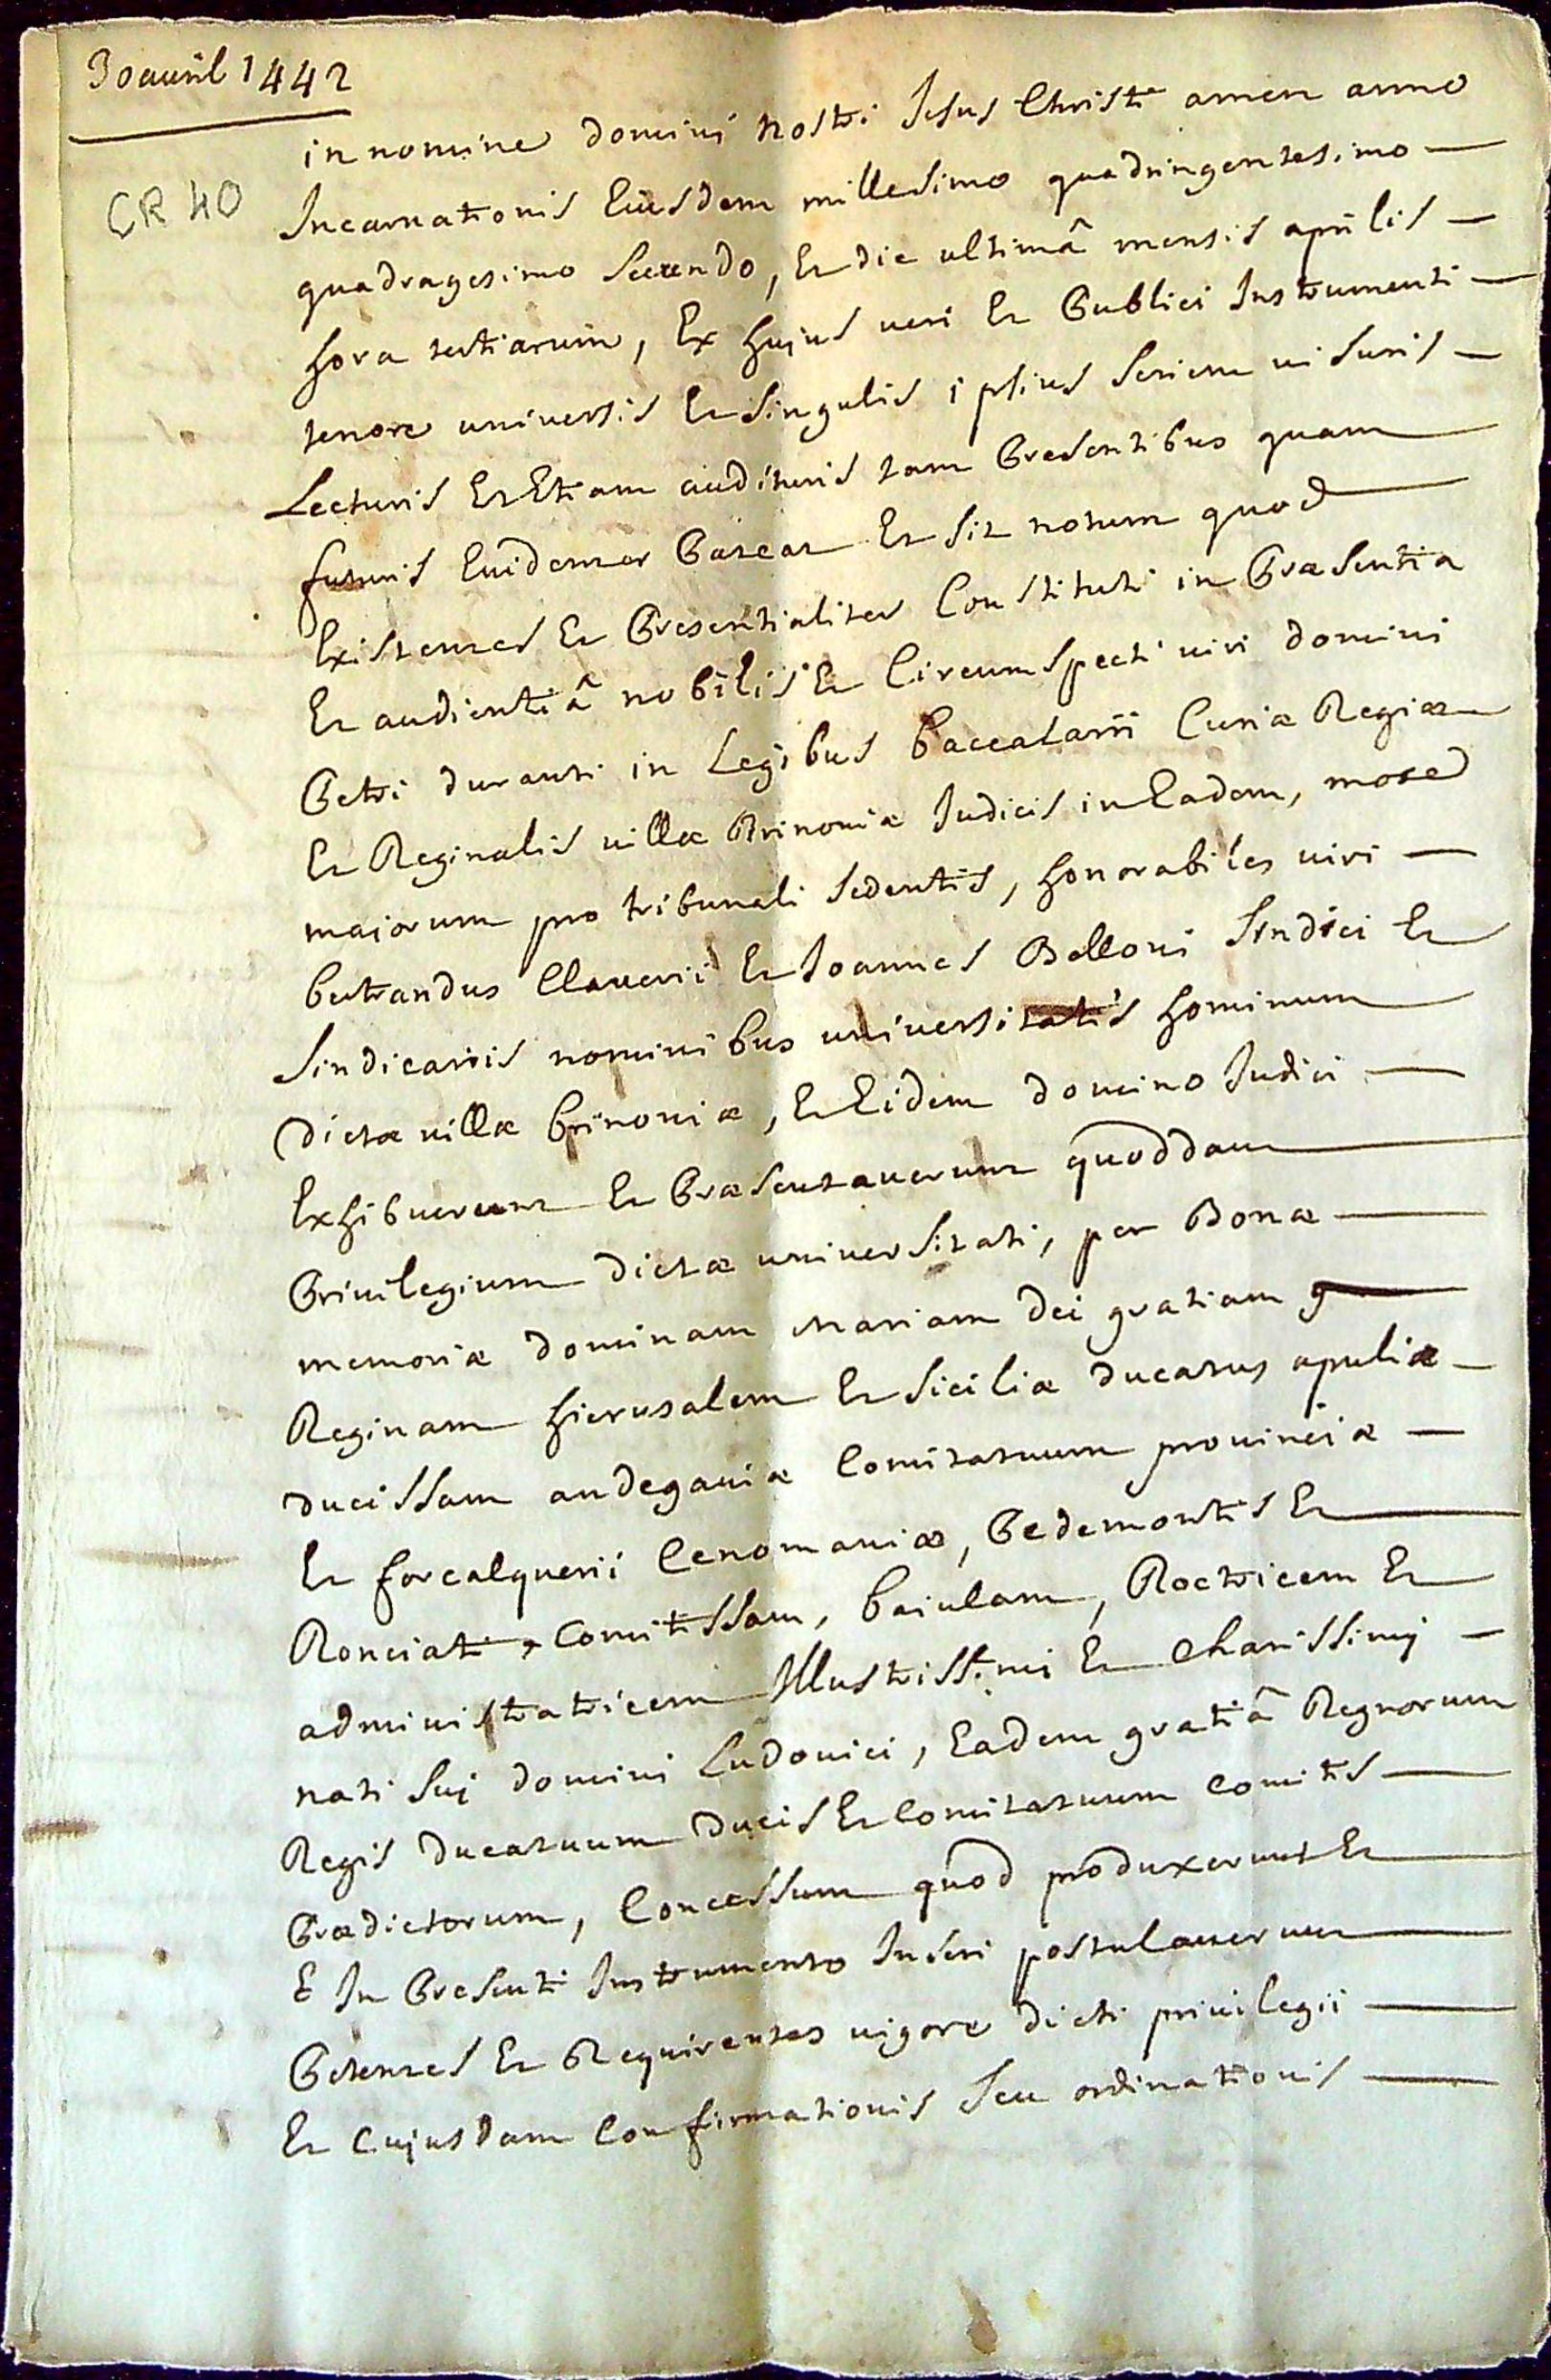 30 auril 1442
CR 40
in nomine domini nostri Jesus Christi amen anno
Incarnationis Eiusdem millesimo quadringentesimo —
quadragesimo Secundo, Et die ultimâ mensis aprilis —
hora tertiarum, Ex hujus ueri Et Publici Instrumenti —
tenore uniuersis Et Singulis ipsius Seriem uisuris —
Lecturis Et Etiam audituris tam Presentibus quam
futuris Euidenter Pateat Et Sit notum quod
Existentes Et Presentialiter Constituti in Præsentia
Et audientiâ nobilis Et Circumspecti uiri domini
Petri duranti in Legibus baccalarii Curiæ Regiæ
Et Reginalis uillæ Brinoniæ Iudicis in Eadem, more
majorum pro tribunali Sedentis, honorabiles uiri —
bertrandus Clauerii Et Joannes Belloni Sindici Et
Sindicariis nominibus uniuersitatis hominum
Dictæ uillæ brinoniæ, Et Eidem domino Iudici —
Exhibuerunt Et Præsentauerunt quoddam
Priuilegium Dictæ uniuersitati, per Bonæ —
memoriæ dominam Mariam Dei gratiam
Reginam hierusalem Et Siciliæ ducatus apuliæ —
ducissam andegauiæ Comitatuum prouinciæ —
Et forcalquerii Cenomaniæ, Pedemontis Et
Ronciati, Comitissam, baiulam, Roctricem Et
administratricem Illustrissimi Et Charissimj —
nati Suj domini Ludouici, Eadem gratiâ Regnorum
Regis ducatuum Ducis Et Comitatuum comitis —
Prædictorum, Concessum quod produxerunt Et
E In Presenti Instrumento Inseri postulauerunt
Petentes Et Requirentes uigore dicti priuilegii —
Et Cujusdam Confirmationis Seu ordinationis —